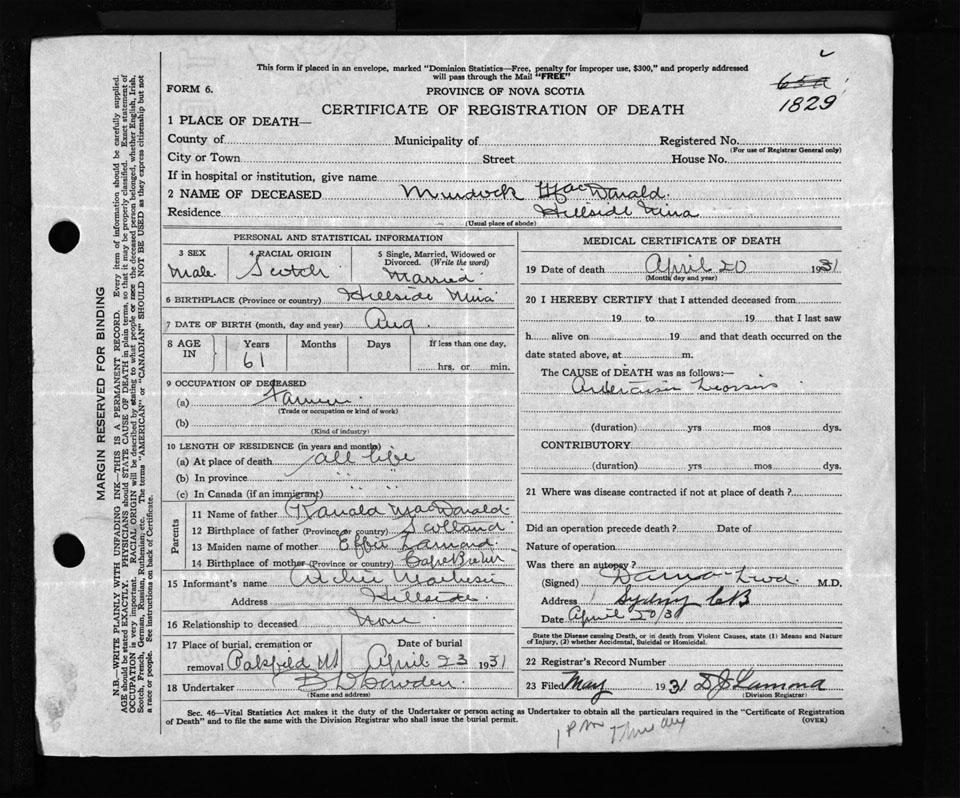 This form if placed in an envelope, marked "Dominion Statistics—Free, penalty for improper use, $300," and properly addressed
will pass through the Mail "FREE"
FORM 6.
PROVINCE OF NOVA SCOTIA
65a
1829
CERTIFICATE OF REGISTRATION OF DEATH
1 PLACE OF DEATH—
County of Municipality of Registered No.
(For use of Registrar General only)
City or Town Street House No.
If in hospital or institution, give name
2 NAME OF DECEASED Murdock MacDonald
Residence Hillside Mira
(Usual place of abode)
PERSONAL AND STATISTICAL INFORMATION
3 SEX 4 RACIAL ORIGIN 5 Single, Married, Widowed or
Divorced. (Write the word)
Male Scotch Married
6 BIRTHPLACE (Province or country) Hillside Mira
7 DATE OF BIRTH (month, day and year) Aug
8 AGE IN Years Months Days If less than one day,
61 hrs. or min.
9 OCCUPATION OF DECEASED
(a) Farmer
(Trade or occupation or kind of work)
(b)
(Kind of industry)
10 LENGTH OF RESIDENCE (in years and months)
(a) At place of death all life
(b) In province " "
(c) In Canada (if an immigrant) " "
Parents
11 Name of father Ranald MacDonald
12 Birthplace of father (Province or country) Scotland
13 Maiden name of mother Effie
14 Birthplace of mother (Province or country) Cape Breton
15 Informant's name Archie
Address Hillside
16 Relationship to deceased None
17 Place of burial, cremation or Date of burial
removal Oakfield April 23 1931
18 Undertaker
(Name and address)
MEDICAL CERTIFICATE OF DEATH
19 Date of death April 20 1931
(Month, day and year)
20 I HEREBY CERTIFY that I attended deceased from
19 to 19 that I last saw
h alive on 19 and that death occurred on the
date stated above, at m.
The CAUSE of DEATH was as follows:—
(duration) yrs mos dys.
CONTRIBUTORY
(duration) yrs mos dys.
21 Where was disease contracted if not at place of death?
Did an operation precede death? Date of
Nature of operation
Was there an autopsy?
(Signed) M.D.
Address Sydney CB
Date April 20/31
State the Disease causing Death, or in death from Violent Causes, state (1) Means and Nature
of Injury, (2) whether Accidental, Suicidal or Homicidal.
22 Registrar's Record Number
23 Filed May 1931
(Division Registrar)
Sec. 46—Vital Statistics Act makes it the duty of the Undertaker or person acting as Undertaker to obtain all the particulars required in the "Certificate of Registration
of Death" and to file the same with the Division Registrar who shall issue the burial permit.
(OVER)
1 PM
MARGIN RESERVED FOR BINDING
N.B.—WRITE PLAINLY WITH UNFADING INK—THIS IS A PERMANENT RECORD. Every item of information should be carefully supplied.
AGE should be stated EXACTLY. PHYSICIANS should STATE CAUSE OF DEATH in plain terms, so that it may be properly classified. Exact statement of
OCCUPATION is very important. RACIAL ORIGIN will be described by stating to what people or race the deceased person belonged, whether English, Irish,
Scotch, French, German, Russian, Ruthenian, etc. The terms "AMERICAN" or "CANADIAN" SHOULD NOT BE USED as they express citizenship but not
a race or people. See instructions on back of Certificate.